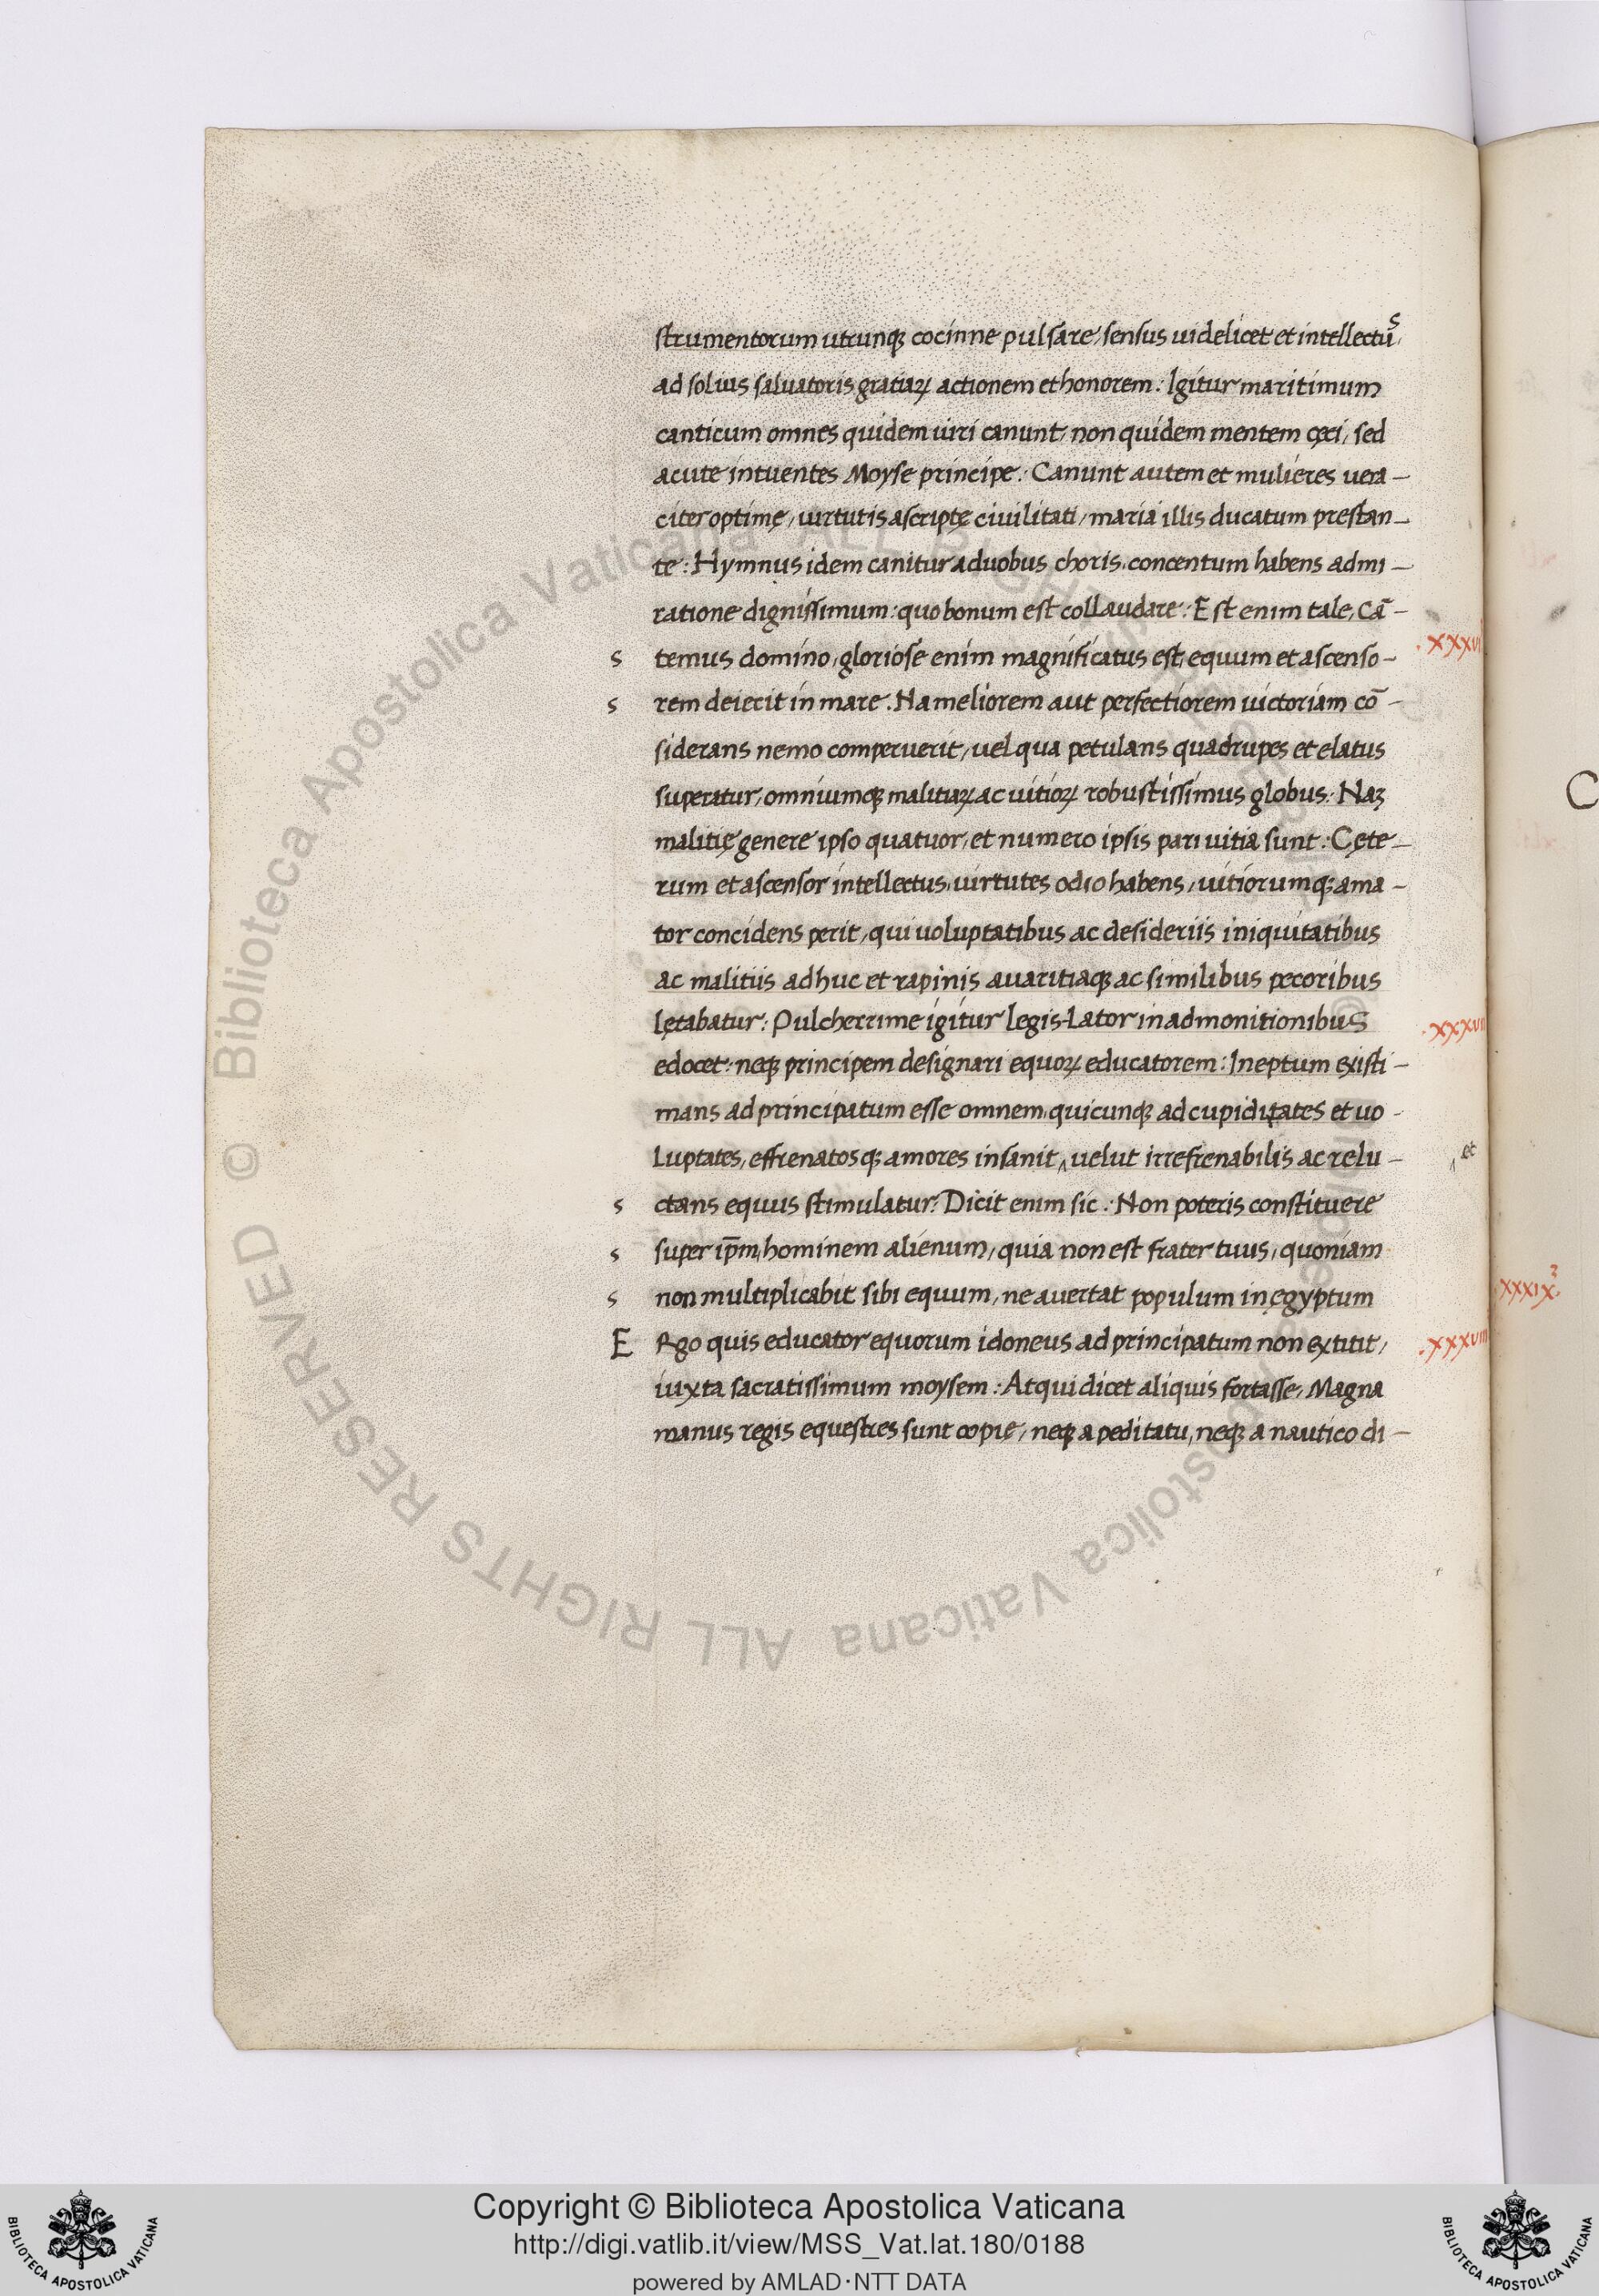 strumentorum utrunq; cocinne pulsare, sensus uidelicet et intellectus,
ad solius saluatoris gratiaꝝ actionem et honorem: Igitur maritimum
canticum omnes quidem uiri canunt, non quidem mentem cęci, sed
acute intuentes Moyse principe: Canunt autem et mulieres uera-
citer optimę, uirtutis ascriptę ciuilitati, maria illis ducatum prestan-
te: Hymnus idem canitur a duobus choris, concentum habens admi-
ratione dignissimum: quo bonum est collaudare: Est enim tale, Cā-
s temus domino, gloriose enim magnificatus est, equum et ascenso-
.XXXVI
s rem deiecit in mare. Na meliorem aut perfectiorem uictoriam cō-
siderans nemo comperuerit, uel qua petulans quadrupes et elatus
superatur, omniumq; malitiaꝝ ac uitioꝝ robustissimus globus: Naʒ
malitię genere ipso quatuor, et numero ipsis pari uitia sunt: Cęte-
rum et ascensor intellectus, uirtutes odio habens, uitiorumq; ama-
tor concidens perit, qui uoluptatibus ac desideriis iniquitatibus
ac malitiis adhuc et rapinis auaritiaq; ac similibus pecoribus
lętabatur: Pulcherrime igitur legis-Lator in admonitionibus
.XXXVII
edocet: neq; principem designari equoꝝ educatorem: Ineptum existi-
mans ad principatum esse omnem, quicunq; ad cupiditates et uo-
Luptates, effrenatosq; amores insanit ‸ uelut irrefrenabilis ac relu-
‸ et
s ctans equus stimulatur? Dicit enim sic: Non poteris constituere
s super ip̄m, hominem alienum, quia non est frater tuus, quoniam
s non multiplicabit sibi equum, ne auertat populum in ęgyptum
XXXIX
E Rgo quis educator equorum idoneus ad principatum non extitit,
.XXXVIII
iuxta sacratissimum moysem: Atqui dicet aliquis fortasse, Magna
manus regis equestres sunt copię, neq; a peditatu, neq; a nautico di-
C
© Biblioteca Apostolica Vaticana ALL RIGHTS RESERVED
© Biblioteca Apostolica Vaticana ALL RIGHTS RESERVED
Copyright © Biblioteca Apostolica Vaticana
http://digi.vatlib.it/view/MSS_Vat.lat.180/0188
powered by AMLAD·NTT DATA
BIBLIOTECA APOSTOLICA VATICANA
BIBLIOTECA APOSTOLICA VATICANA